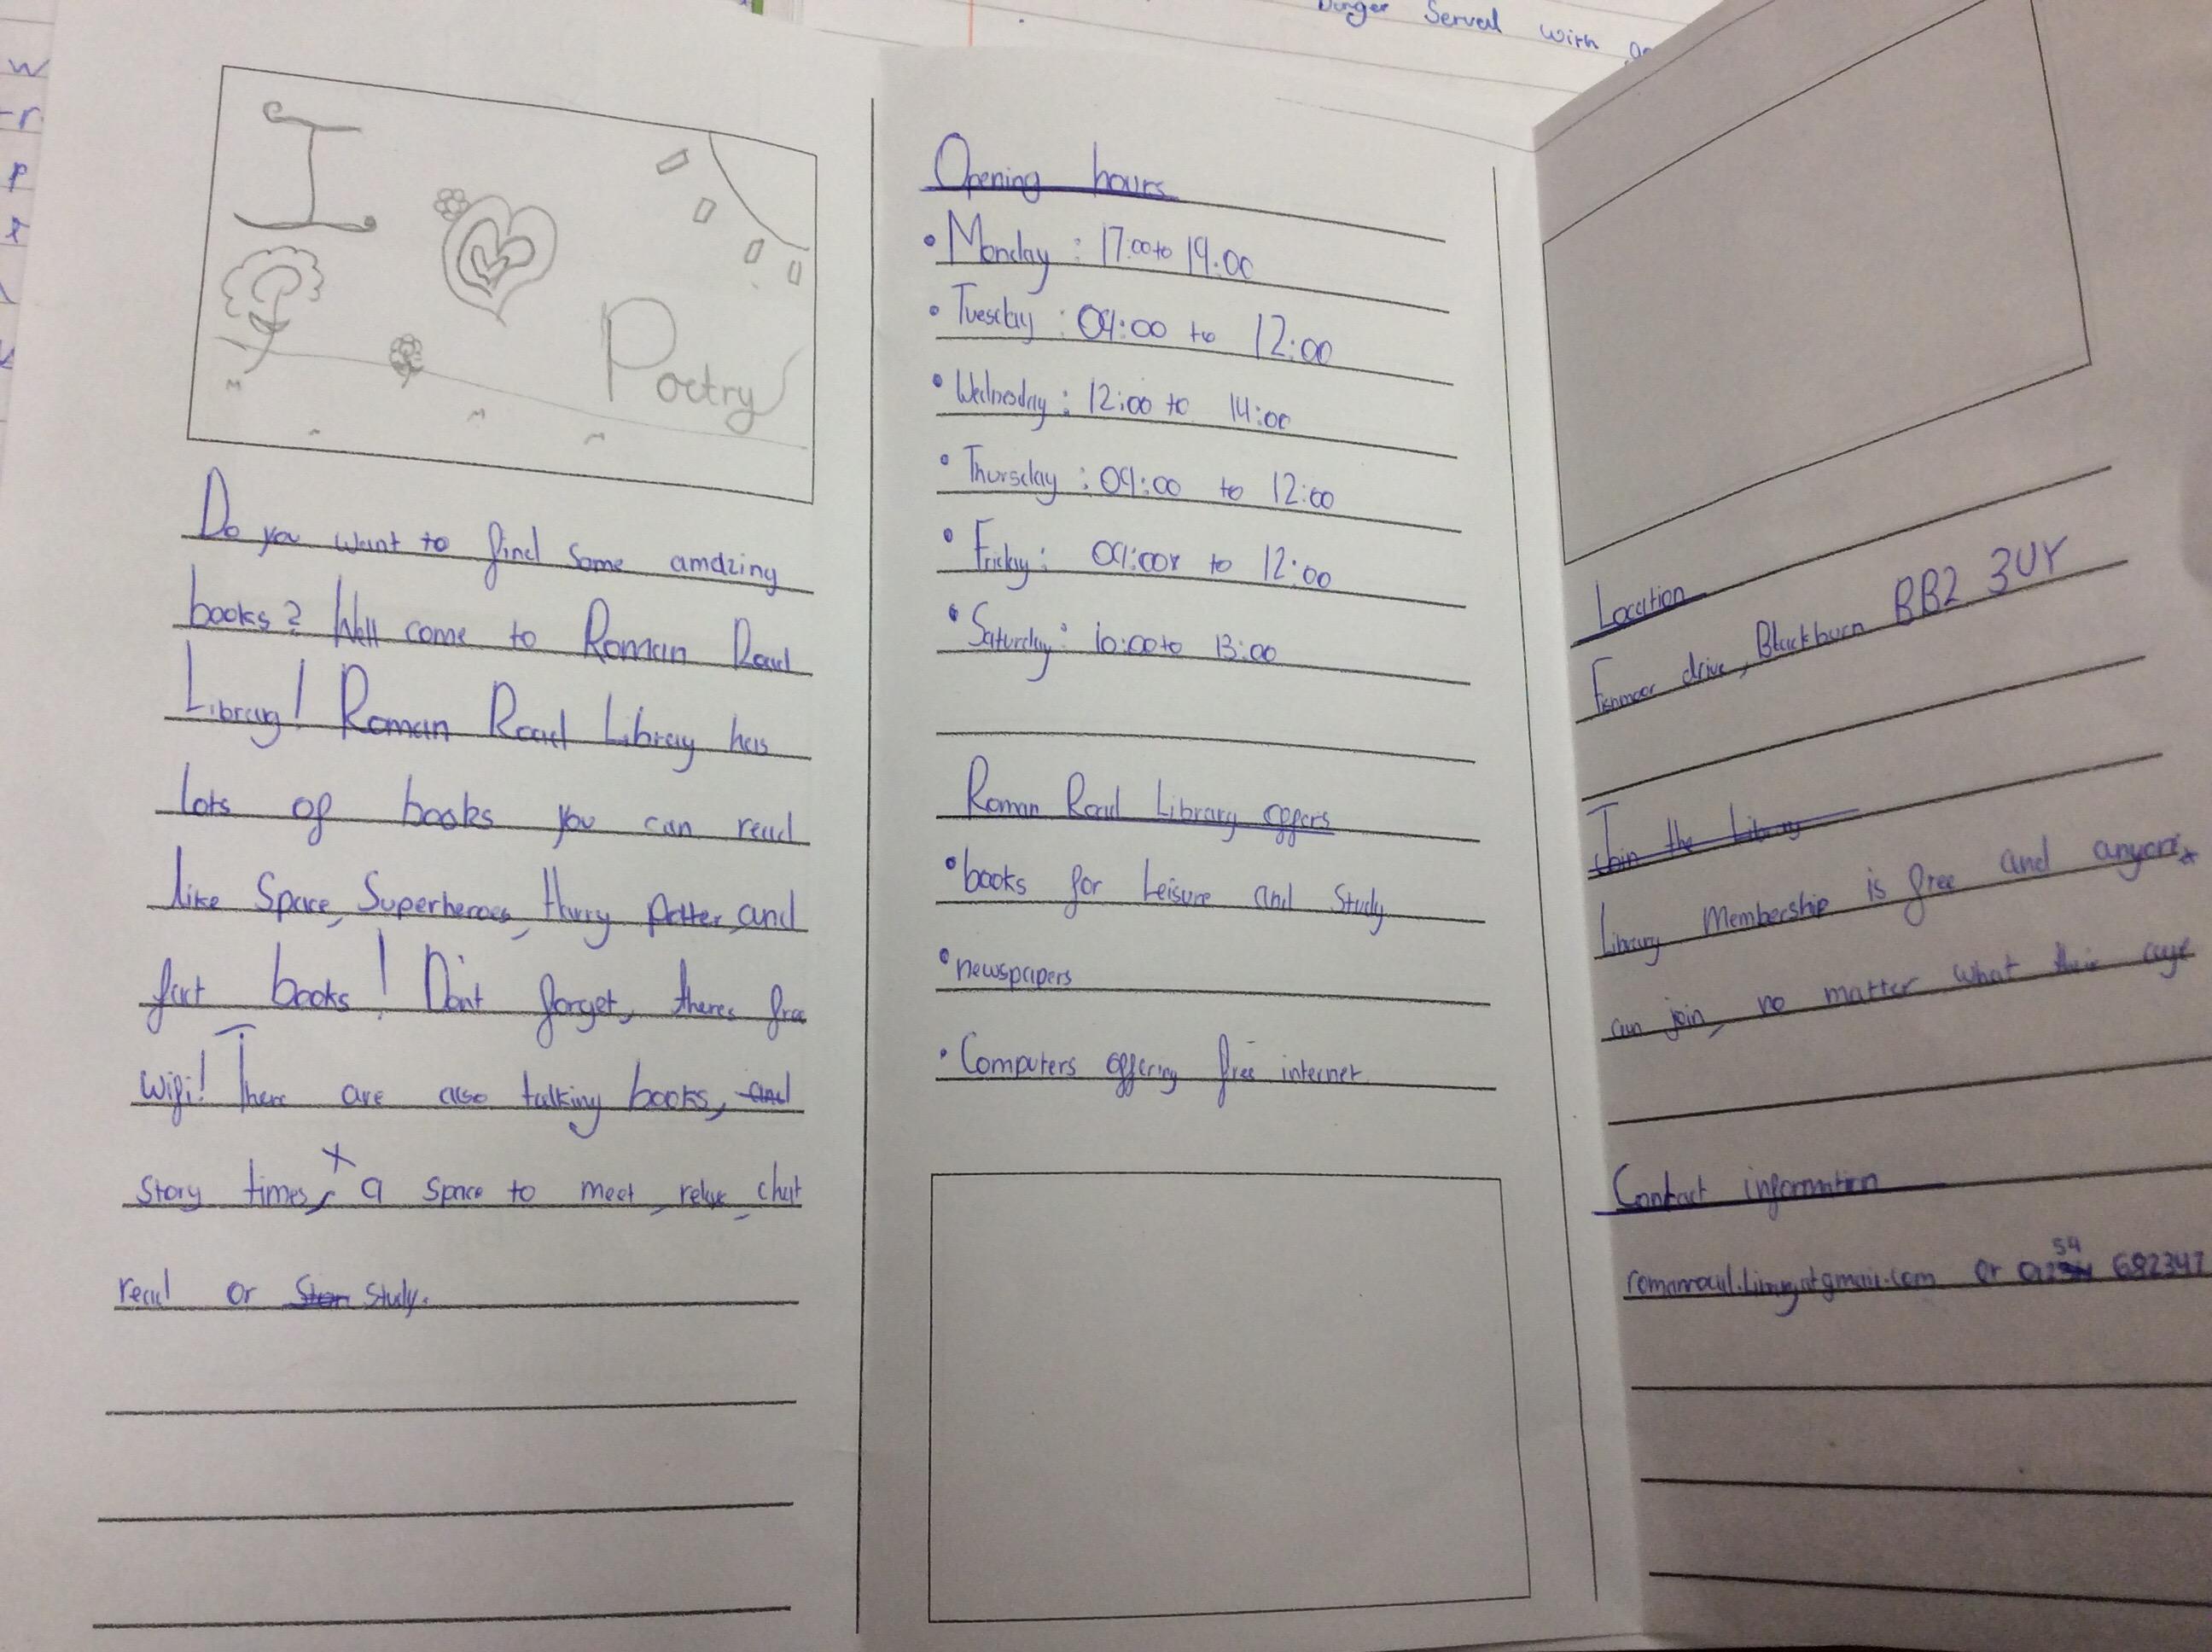 Burger Served with
I
Poetry
Do you want to find some amazing
books? Well come to Roman Road
Library! Roman Road Library has
lots of books you can read
like Space, Superheroes, Harry Potter, and
fact books! Don't forget, theres free
wifi! There are also talking books, and
story times, a space to meet, relax, chat
read or study.
Opening hours
• Monday : 17:00 to 19:00
• Tuesday : 09:00 to 12:00
• Wednesday : 12:00 to 14:00
• Thursday : 09:00 to 12:00
• Friday : 09:00 to 12:00
• Saturday : 10:00 to 13:00
Roman Road Library offers
• books for Leisure and Study
• newspapers
• Computers offering free internet
Location
Fishmoor drive, Blackburn BB2 3UY
Join the Library
Library Membership is free and anyone
can join, no matter what their age
Contact information
romanroad.library@gmail.com or 01254 682347